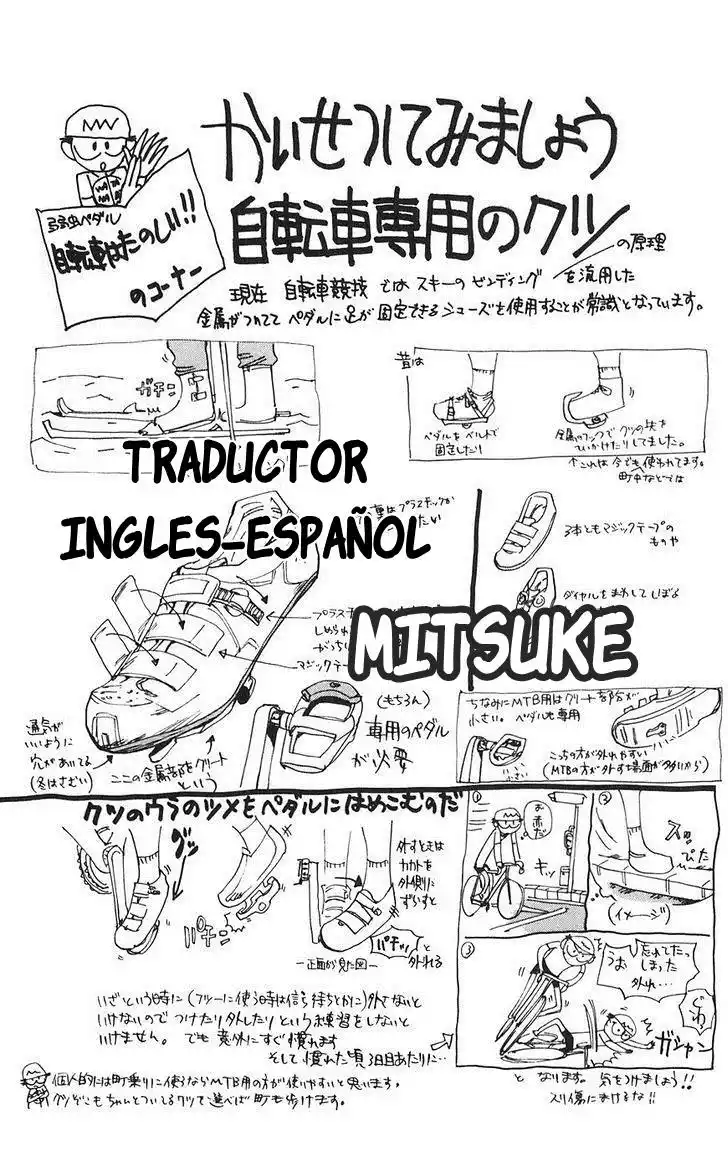 かいせつしてみましょう
自転車専用のクツ
の原理
弱虫ペダル
自転車はたのしい!!
のコーナー
現在 自転車競技ではスキーのビンディングを流用した
金属がついてて ペダルに足が固定できるシューズを使用することが常識となっています。
ガチン
昔は
ペダルをベルトで
固定したり
金属のフックでクツの先を
ひっかけたりしてました。
↑これは今でも使われてます。
町中などでは
TRADUCTOR
INGLES-ESPAÑOL
MITSUKE
はプラスチックか
3本ともマジックテープの
ものや
ダイヤルをまわしてしぼる
プラス
しめられ
がっち
マジックテー
通気が
いいように
穴があいてる
(冬はさむい)
ここの金属部をクリート
という
(もちろん)
専用のペダル
が必要
ちなみにMTB用はクリート部分が
小さい。 ペダルも専用
小さい
こっちの方が外れやすい
(MTBの方が外す場面が多いから)
クツのウラのツメをペダルにはめこむのだ
グッ
パチン
外すときは
カカトを
外側に
ずらすと
パチッ
と
外れる
ー正面から見た図ー
①
お
赤だ
キッ
②
スッ
ぴた
(イメージ)
③
うお
忘れてたっ
しまった
外れ…
ガシャン
いざという時に(フツーに使う時は信号待ちとかに)外さないと
いけないので つけたり外したりという練習をしないと
いけません。 でも意外にすぐ慣れます
そして慣れた頃3日目あたりに…
と なります。 気をつけましょう!!
スリ傷にまけるな!!
個人的には町乗りに使うならMTB用の方が使いやすいと思います。
クツぞこもちゃんとついてるクツで選べば町も歩けます。